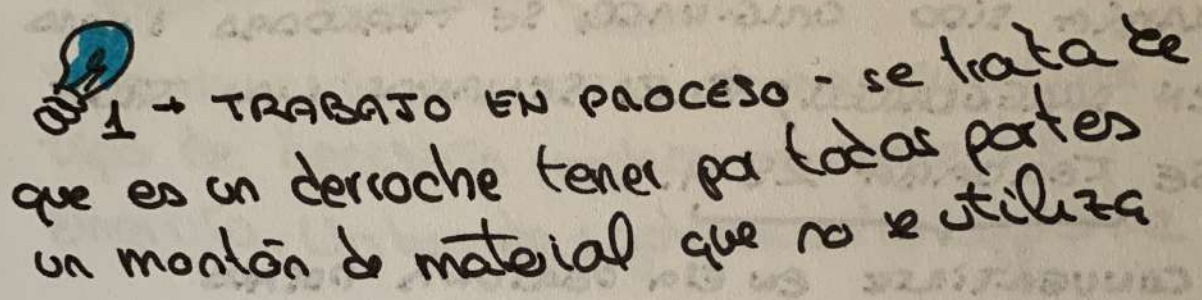 1 → TRABAJO EN PROCESO - se trata de
que es un derroche tener por todas partes
un montón de material que no se utiliza